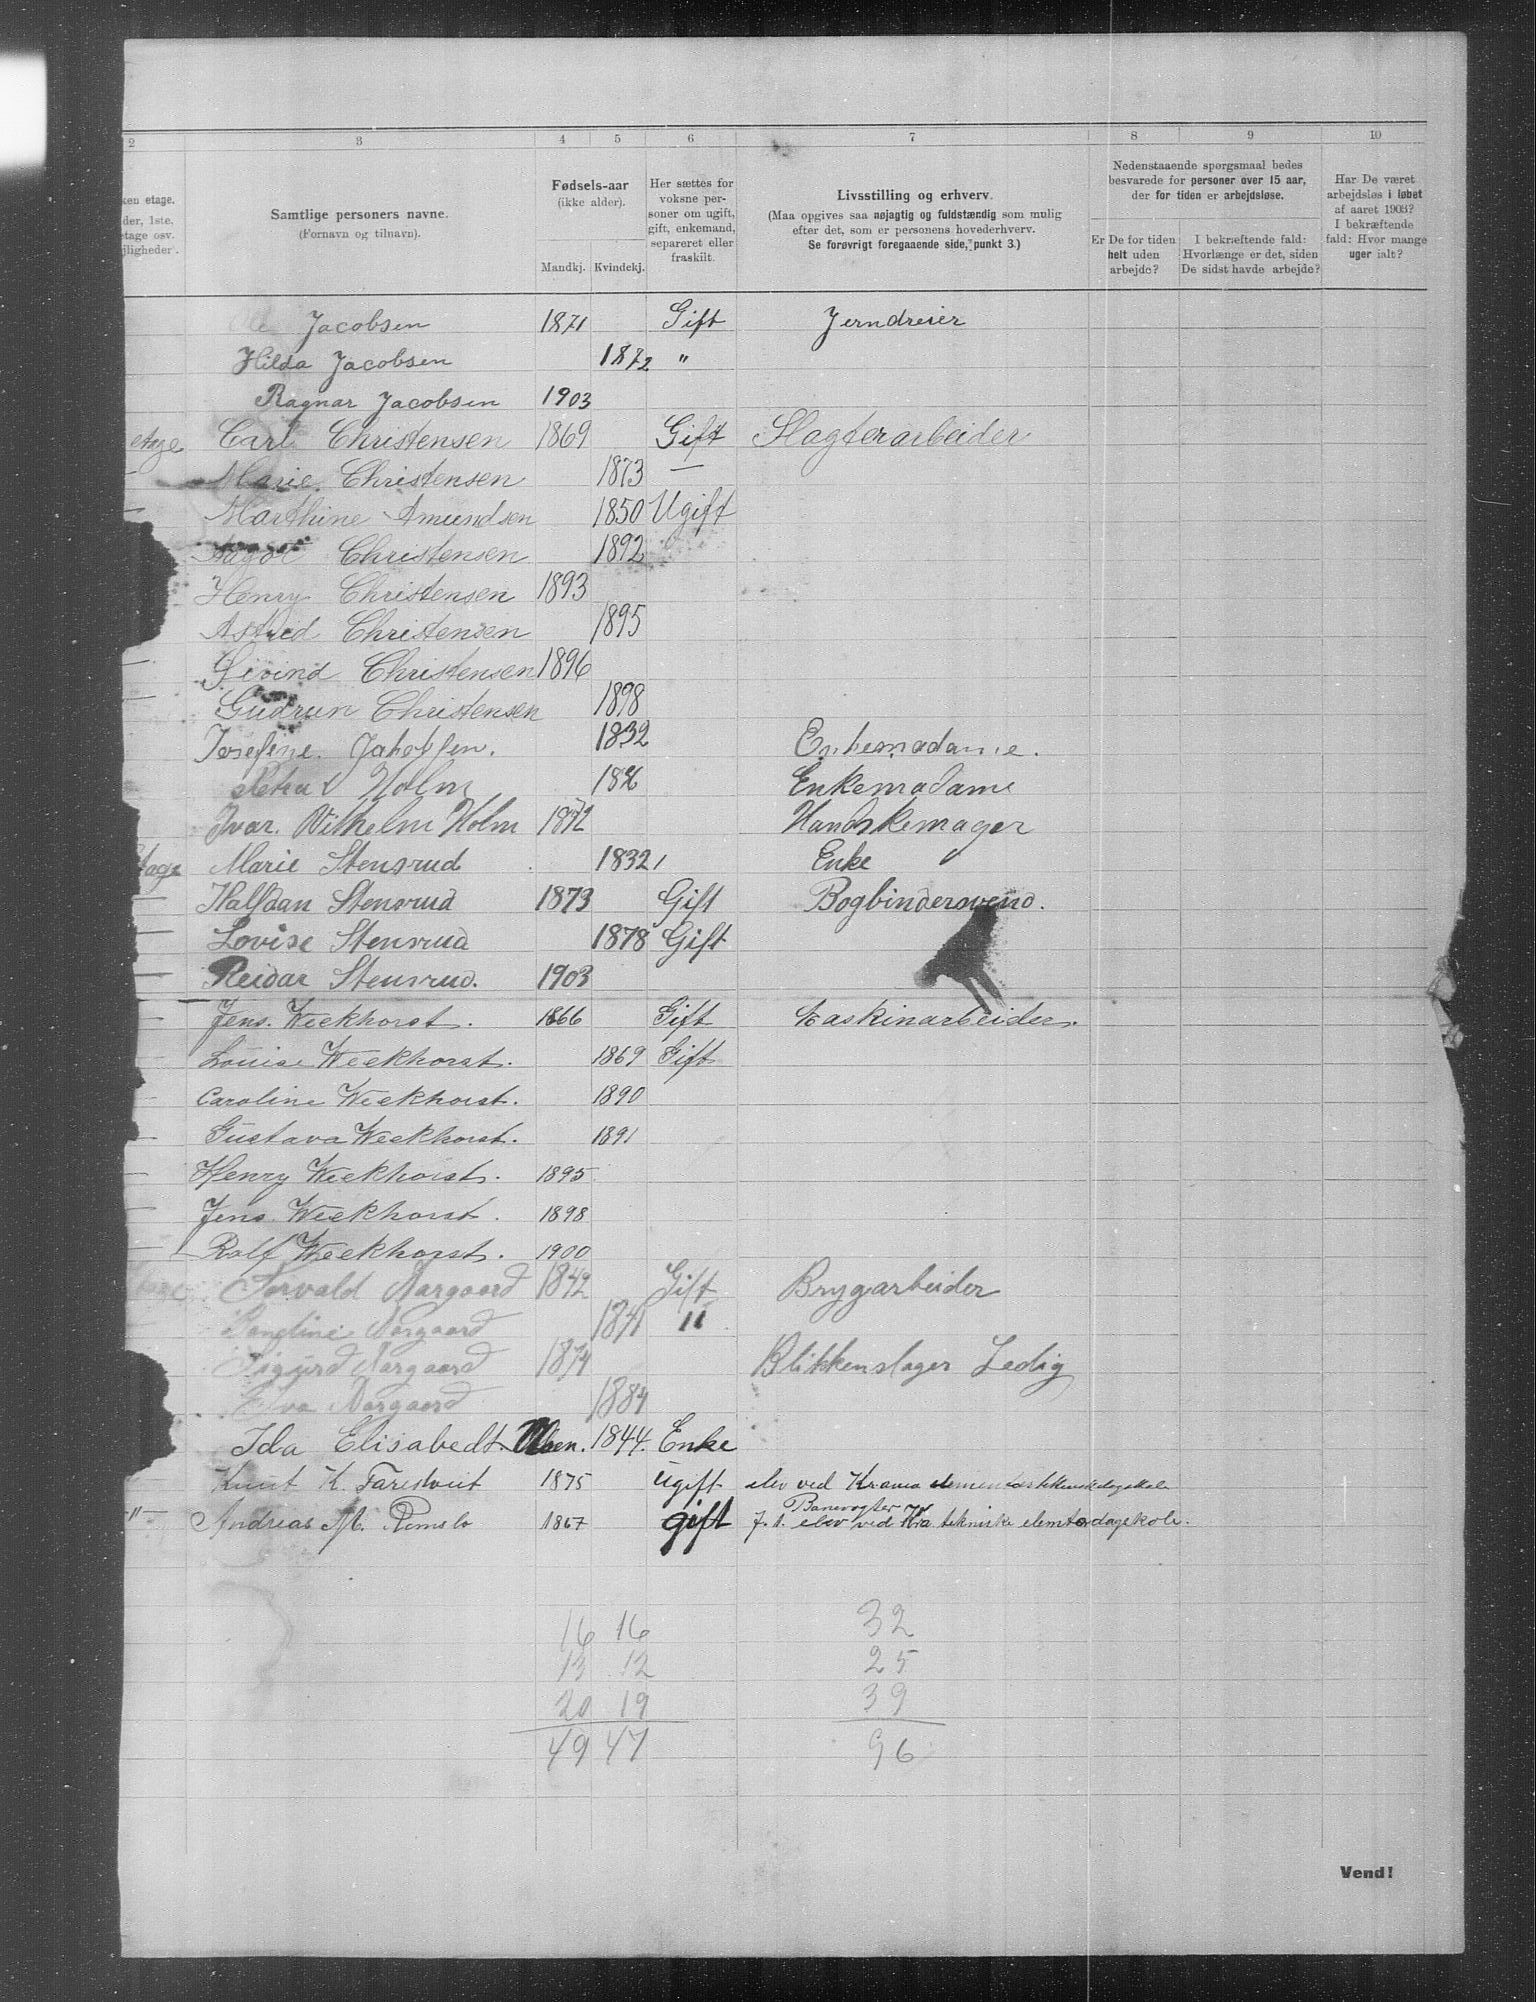 2 3 4 5 6 7 8 9 10
ken etage.
der, 1ste,
etage osv.
jligheder.
Samtlige personers navne.
(Fornavn og tilnavn).
Fødsels-aar
(ikke alder).
Mandkj. Kvindekj.
Her sættes for
voksne per-
soner om ugift,
gift, enkemand,
separeret eller
fraskilt.
Livsstilling og erhverv.
(Maa opgives saa nøjagtig og fuldstændig som mulig
efter det, som er personens hovederhverv.
Se forøvrigt foregaaende side, punkt 3.)
Nedenstaaende spørgsmaal bedes
besvarede for personer over 15 aar,
der for tiden er arbejdsløse.
Er De for tiden
helt uden
arbejde?
I bekræftende fald:
Hvorlænge er det, siden
De sidst havde arbejde?
Har De været
arbejdsløs i løbet
af aaret 1903?
I bekræftende
fald: Hvor mange
uger ialt?
Jacobsen 1871 Gift Jerndreier
Hilda Jacobsen 1872 "
Ragnar Jacobsen 1903
etage Carl Christensen 1869 Gift Slagterarbeider
Marie Christensen 1873 —
Marthine Amundsen 1850 Ugift
Christensen 1892
Henry Christensen 1893
Astrid Christensen 1895
Øivind Christensen 1896
Gudrun Christensen 1898
Josefine. Jakobsen. 1832 Enkemadame.
Holm Enkemadame
Ivar. Wilhelm Holm 1872 Handskemager
tage Marie Stensrud 1832 Enke
Halfdan Stensrud 1873 Gift Bogbindersvend.
Lovise Stensrud 1878 Gift
— Reidar Stensrud. 1903
— Jens. Weekhorst. 1866 Gift Maskinarbeider.
— Louise Weekhorst. 1869 Gift
— Caroline Weekhorst. 1890
— Gustava Weekhorst. 1891
— Henry Weekhorst. 1895
— Jens Weekhorst. 1898
— Rolf Weekhorst. 1900
Torvald Norgaard 1842 Gift Brygarbeider
Norgaard 1841 "
Sigurd Norgaard 1874 Blikkenslager Ledig
Norgaard 1884
Ida Elisabedt Olsen. 1844. Enke
Knut K. Farestveit 1875 ugift elev ved Krania elementærtekniskdagskole
Banevogter
—"— Andreas M. Remslo 1867 gift f. t. elev ved Kra tekniske elemtærdagskole.
16 16 32
13 12 25
20 19 39
49 47 96
Vend!